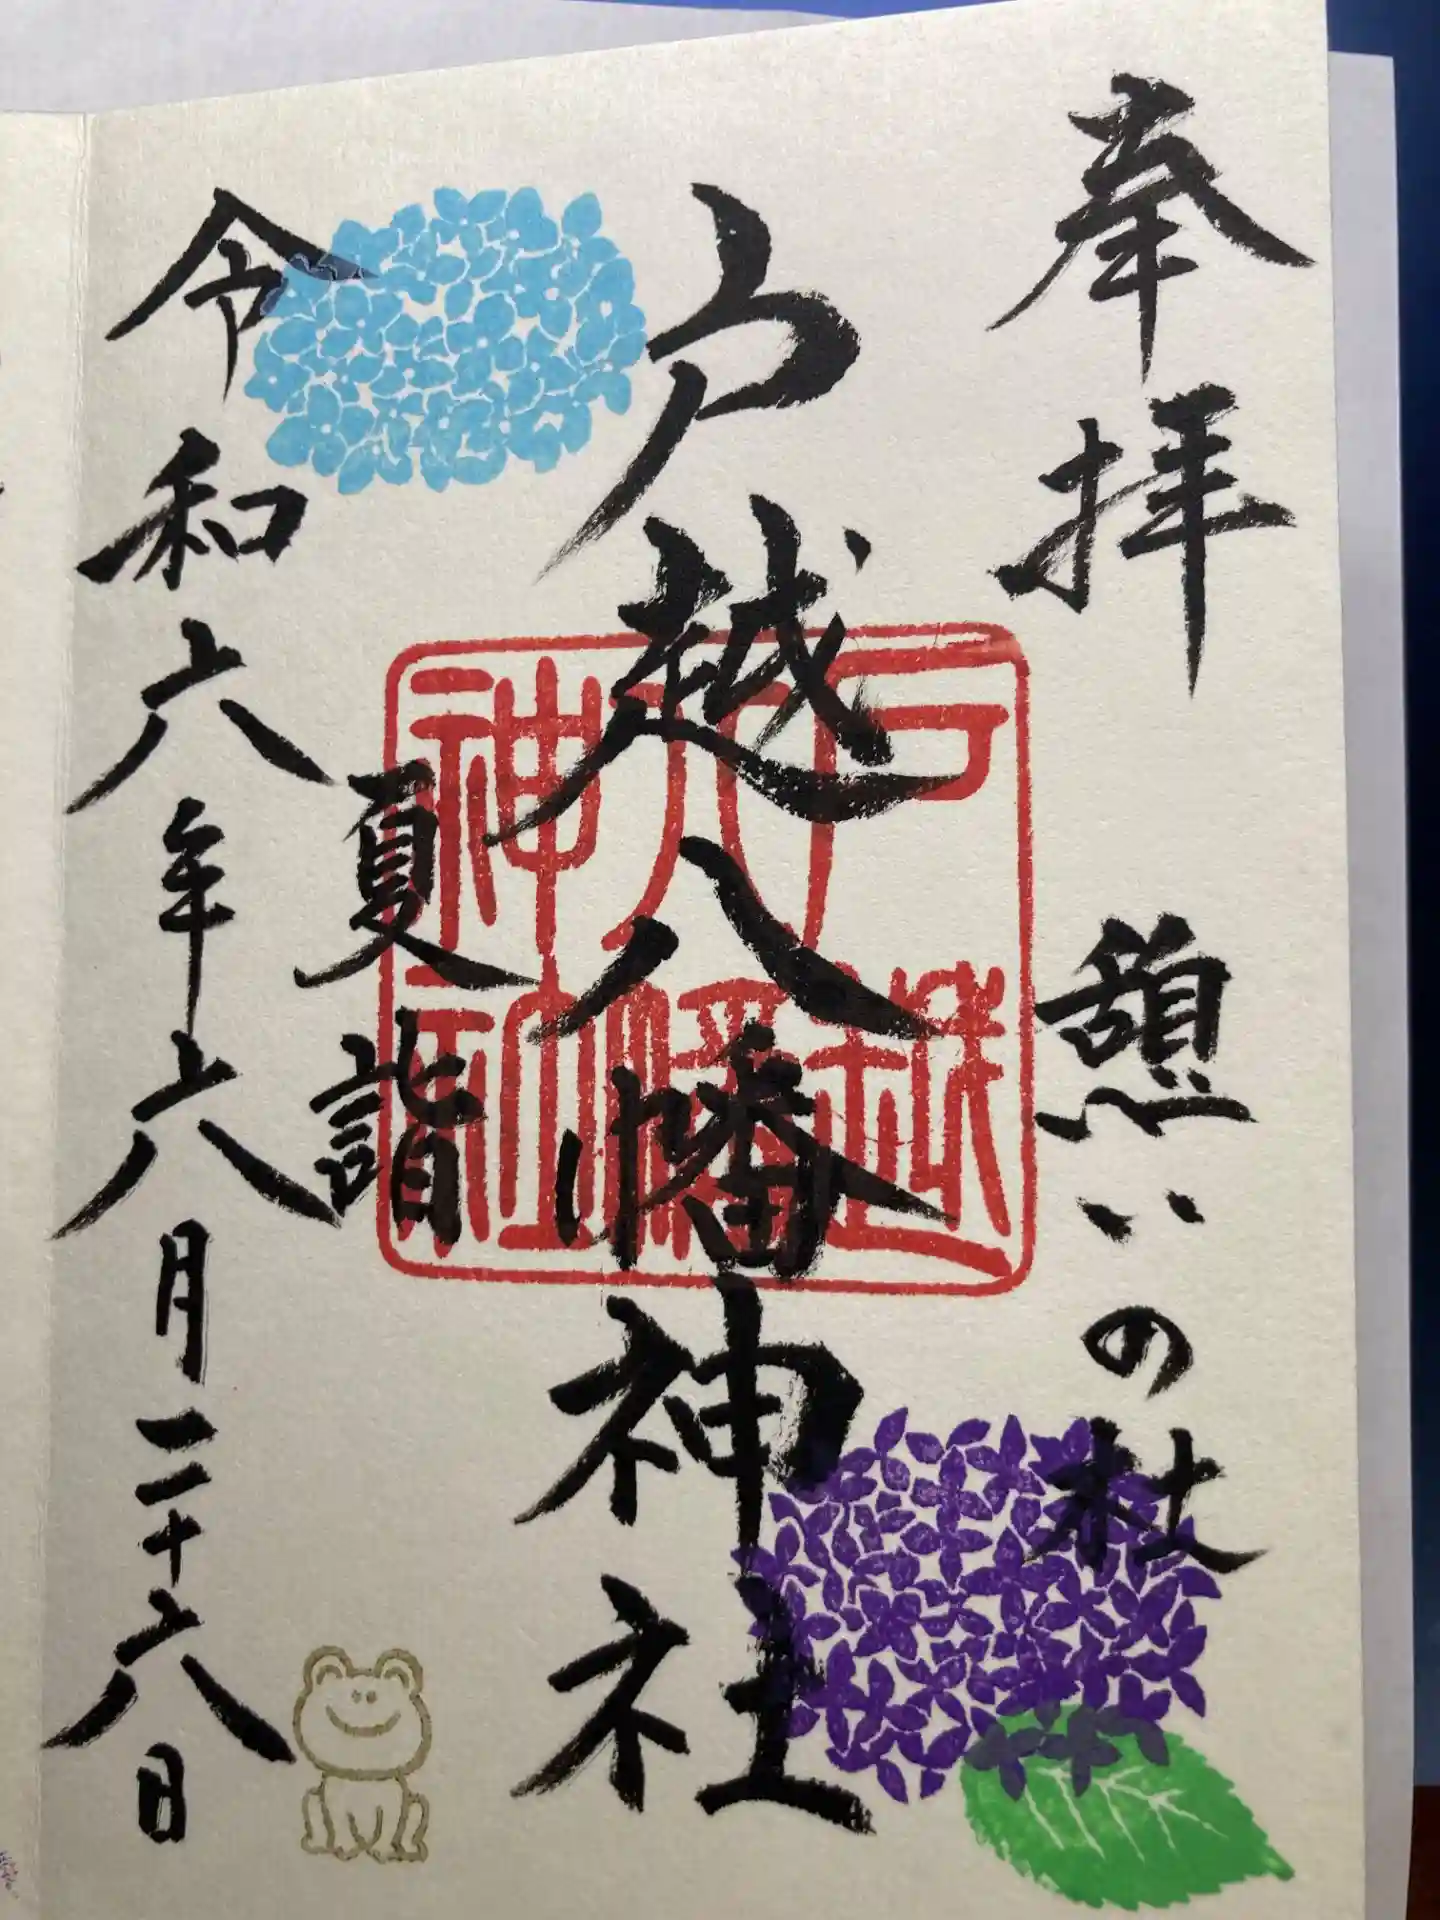 奉拝 憩いの社
戸越八幡神社
戸越
八幡
神社
夏詣
令和六年六月二十六日